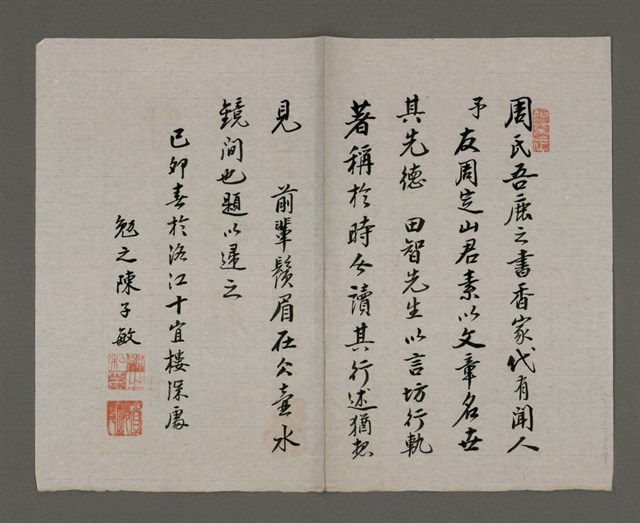 周氏吾鹿之書香家代有聞人
予友周定山君素以文章名世
其先德 田智先生以言坊行軌
著稱於時今讀其行述猶想
見 前輩鬚眉在公壺水
鏡间也題以歸之
己卯春於洛江十宜樓深處
勉之陳子敏